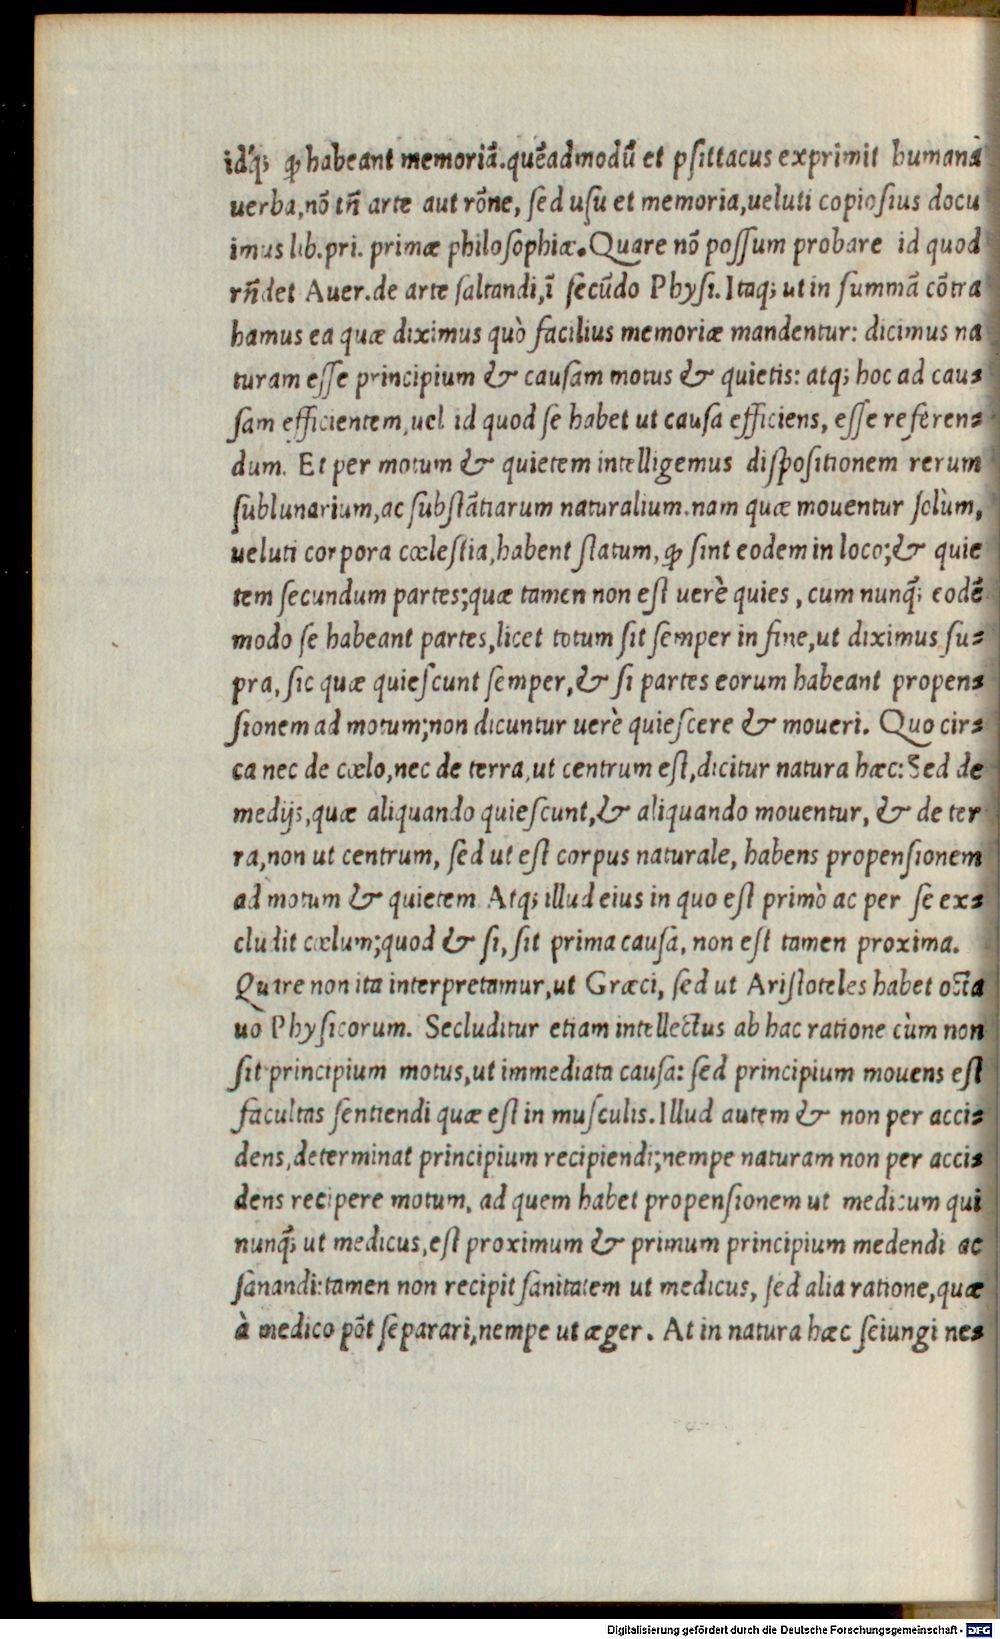 idq́; ꝙ habeant memoriā.quēadmodū et psittacus exprimit humana
uerba,nō tñ arte aut rōne, sed usu et memoria,ueluti copiosius docu
imus lib.pri. primæ philosophiæ.Quare nō possum probare id quod
rñdet Auer.de arte saltandi,ī secūdo Physi.Itaq; ut in summā cōtra
hamus ea quæ diximus quò facilius memoriæ mandentur: dicimus na
turam esse principium & causam motus & quietis: atq; hoc ad caus
sam efficientem,uel id quod se habet ut causa efficiens, esse referen-
dum. Et per motum & quietem intelligemus dispositionem rerum
sublunarium,ac substātiarum naturalium.nam quæ mouentur solùm,
ueluti corpora cœlestia,habent statum, ꝙ sint eodem in loco;& quie
tem secundum partes;quæ tamen non est uerè quies , cum nunq̃; eodē
modo se habeant partes,licet totum sit semper in fine,ut diximus su-
pra, sic quæ quiescunt semper,& si partes eorum habeant propen-
sionem ad motum;non dicuntur uerè quiescere & moueri. Quo cir-
ca nec de cœlo,nec de terra,ut centrum est,dicitur natura hæc: Sed de
medijs,quæ aliquando quiescunt,& aliquando mouentur, & de ter
ra,non ut centrum, sed ut est corpus naturale, habens propensionem
ad motum & quietem Atq; illud eius in quo est primò ac per se ex-
cludit cœlum;quod & si, sit prima causa, non est tamen proxima.
Quare non ita interpretamur,ut Græci, sed ut Aristoteles habet octa
uò Physicorum. Secluditur etiam intellectus ab hac ratione cùm non
sit principium motus,ut immediata causa: sed principium mouens est
facultas sentiendi quæ est in musculis. Illud autem & non per acci-
dens,determinat principium recipiendi;nempe naturam non per acci-
dens recipere motum, ad quem habet propensionem ut medicum qui
nunq̃; ut medicus,est proximum & primum principium medendi ac
sanandi:tamen non recipit sanitatem ut medicus, sed alia ratione,quæ
à medico pōt separari,nempe ut æger. At in natura hæc seiungi ne-
Digitalisierung gefördert durch die Deutsche Forschungsgemeinschaft - DFG